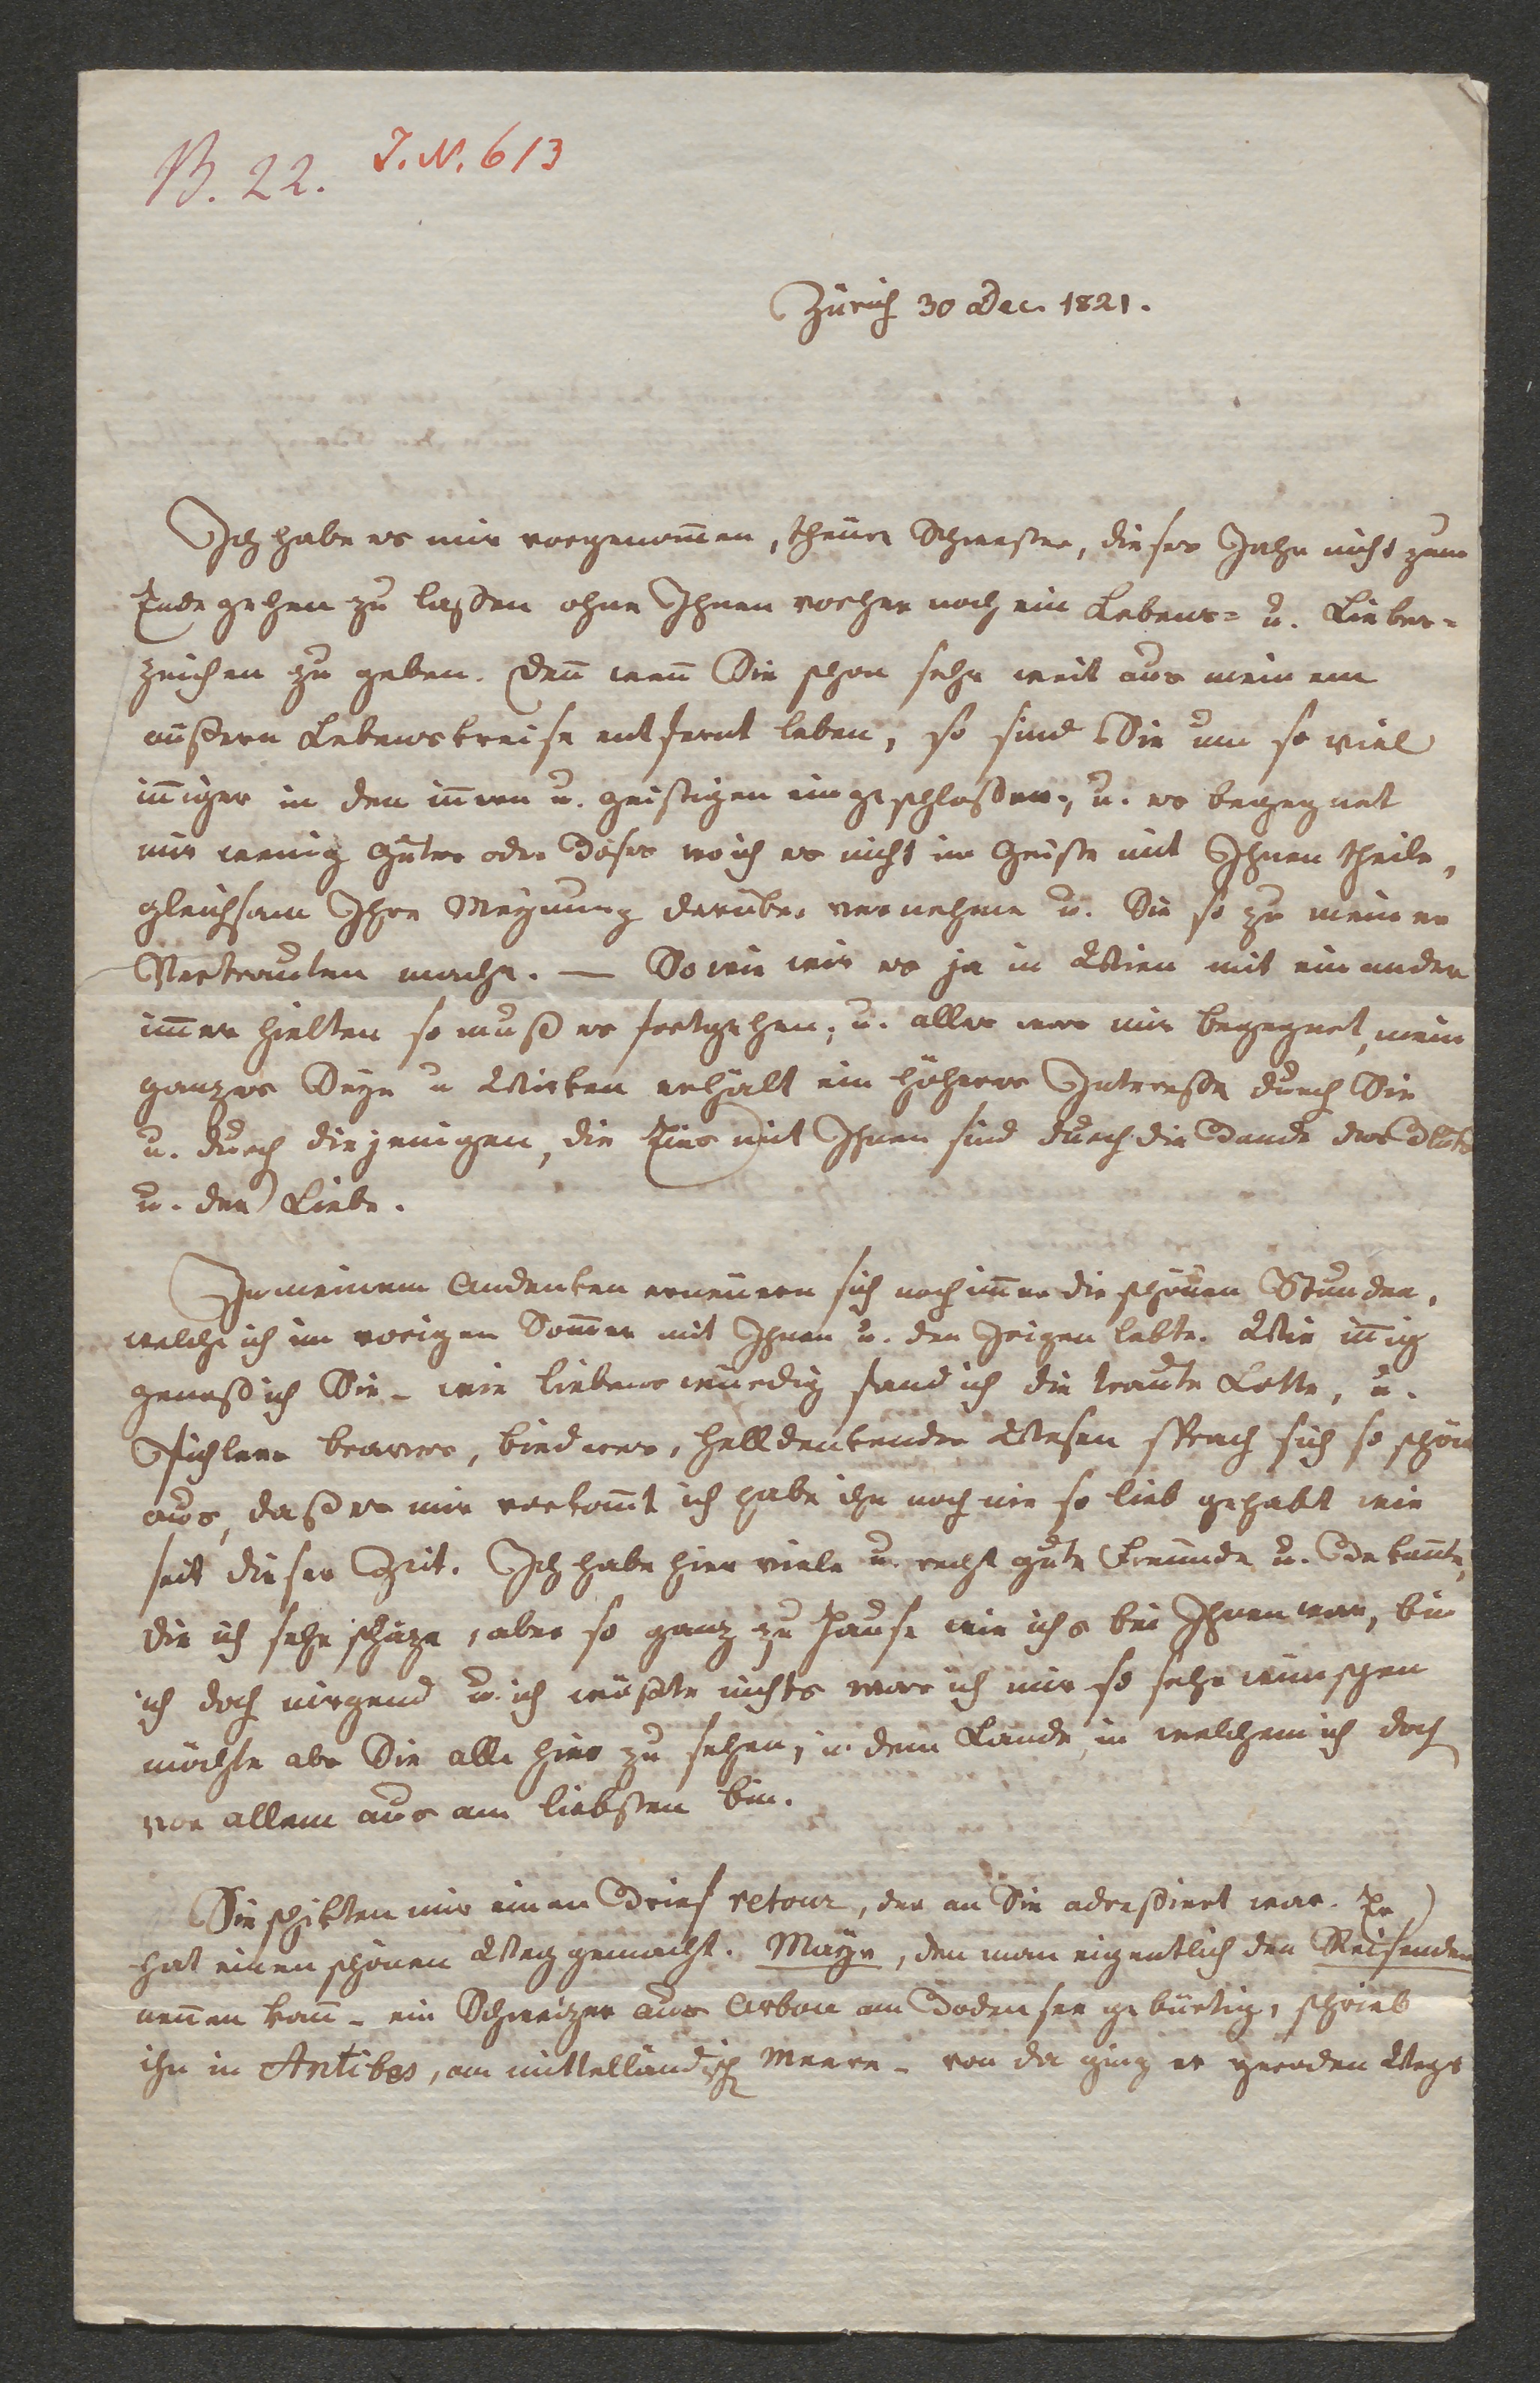 B. 22. J. N. 613
Zürich 30 Dec. 1821.
Ich habe es mir vorgenom̅en, theure Schwester, dieses Jahr nicht zum
Ende gehen zu laßen ohne Ihnen vorher noch ein Lebens= u. Liebes=
zeichen zu geben. Den̅ wen̅ Sie schon sehr weit aus meinem
äußern Lebenskreise entfernt leben, so sind Sie um so viel
in̅iger in den in̅ern u. geistigen eingeschloßen, u. es begegnet
mir wenig Gutes oder Böses wo ich es nicht im Geiste mit Ihnen theile,
gleichsam Ihre Meynung darüber vernehme u. Sie so zu meiner
Vertrauten mache. — So wie wir es ja in Wien mit einander
im̅er hielten so muß es fortgehen; u. alles was mir begegnet, mein
ganzes Seyn u Wirken erhält ein höheres Intereße durch Sie
u. durch diejenigen, die Eins mit Ihnen sind durch die Bande des Bluts
u. der Liebe.
In meinem Andenken erneuern sich noch im̅er die schönen Stunden,
welche ich im vorigen Som̅er mit Ihnen u. den Ihrigen lebte. Wie in̅ig
genoß ich Sie – wie liebenswürdig fand ich die traute Lotte, u.
Pichlers braves, biedres, helldenkendes Wesen sprach sich so schön
aus, daß es mir vorkom̅t ich habe ihn noch nie so lieb gehabt wie
seit dieser Zeit. Ich habe hier viele u. recht gute Freunde u. Bekan̅te,
die ich sehr schäze, aber so ganz zu Hause wie ichs bei Ihnen war, bin
ich doch nirgend u. ich wüßte nichts was ich mir so sehr wünschen
möchte als Sie alle hier zu sehen, in dem Lande, in welchem ich doch
vor allem aus am liebsten bin.
Sie schikten mir einen Brief retour, der an Sie adreßiert war. Er
hat einen schönen Weg gemacht. Mayr, den man eigentlich den Reisenden
nen̅en kan̅ – ein Schweizer aus Arbon am Bodensee gebürtig, schrieb
ihn in Antibes, am mittelländisch Meere – von da ging er geraden Wegs